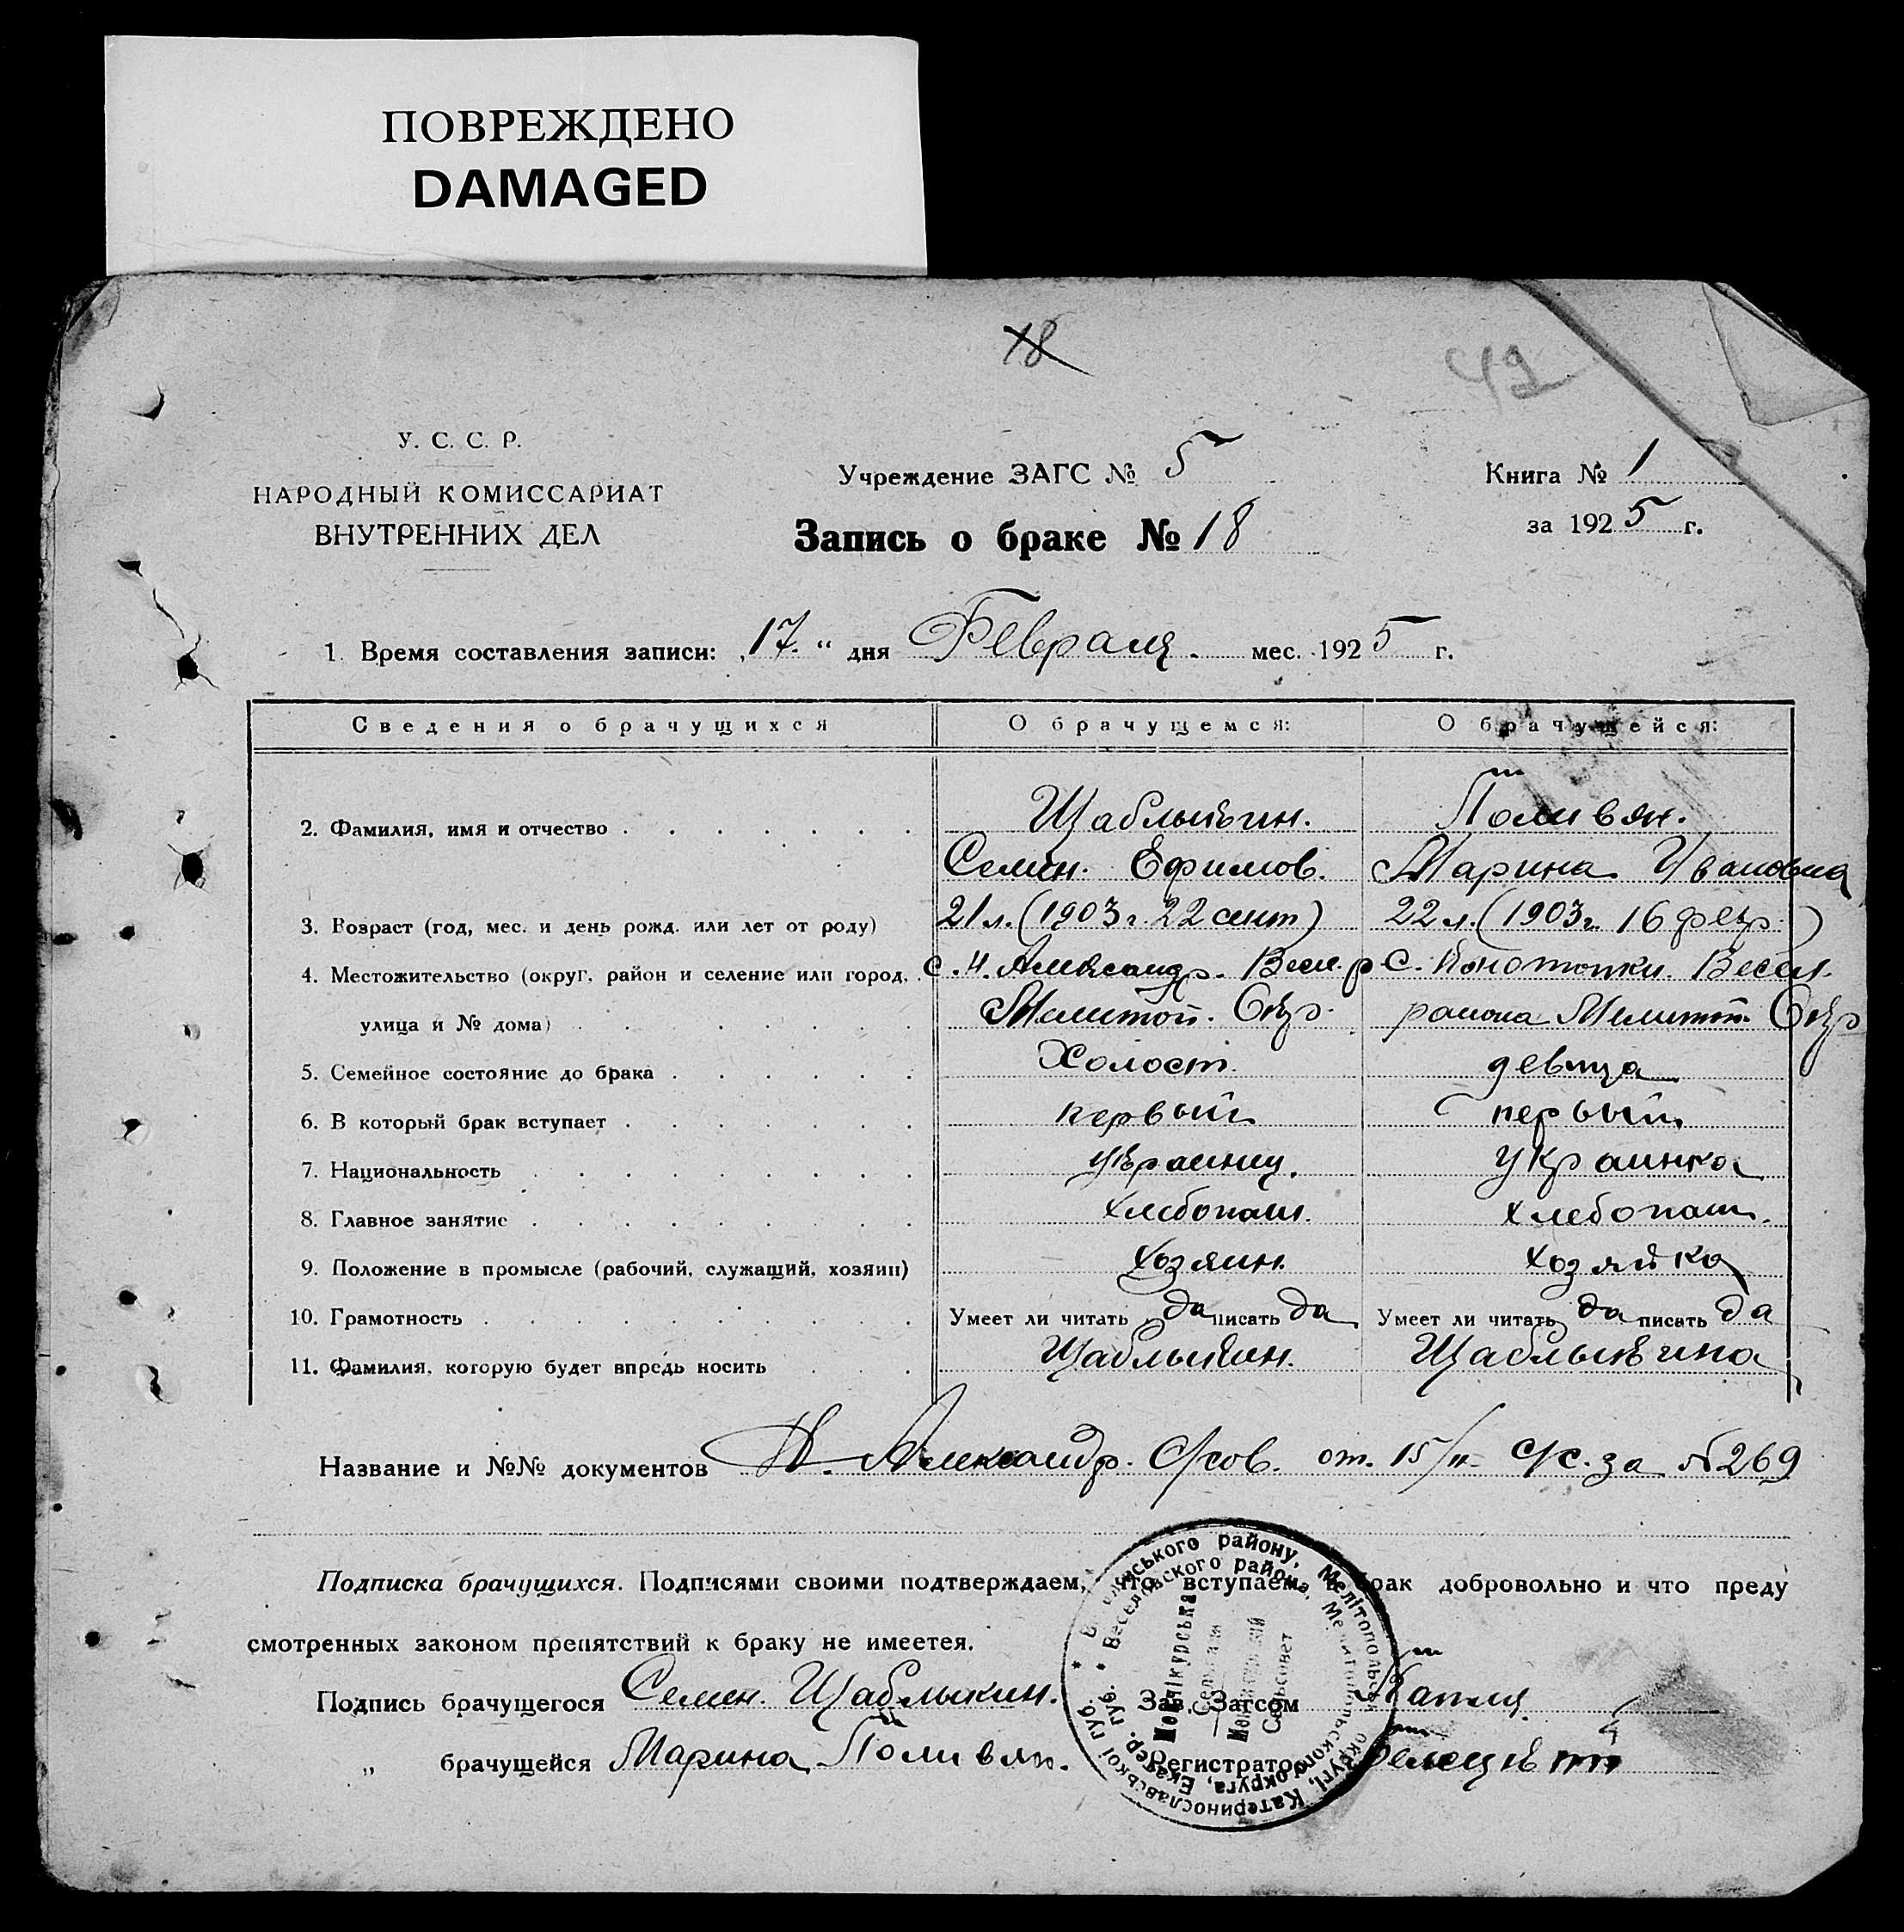 ПОВРЕЖДЕНО
DAMAGED
18
42
У. С. С. Р.
НАРОДНЫЙ КОМИССАРИАТ
ВНУТРЕННИХ ДЕЛ
Учреждение ЗАГС № 5
Запись о браке № 18
Книга № 1
за 1925 г.
1. Время составления записи: „17.“ дня Февраля. мес. 1925 г.
Сведения о брачущихся О брачущемся: О брачущейся:
2. Фамилия, имя и отчество Щаблыкин. Поливян.
Семен. Ефимов. Марина Ивановна
3. Возраст (год, мес. и день рожд. или лет от роду) 21 л. (1903 г. 22 сент) 22 л. (1903 г. 16 февр.)
4. Местожительство (округ, район и селение или город, с. Н. Александр. Весел. р С. Конотопки. Весел.
улица и № дома) Мелитоп. Окр. района Мелитоп. Окр
5. Семейное состояние до брака Холост. девица
6. В который брак вступает первый первый
7. Национальность украинец. украинка
8. Главное занятие хлебопаш. хлебопаш.
9. Положение в промысле (рабочий, служащий, хозяин) хозяин. хозяйка
10. Грамотность Умеет ли читать да писать да Умеет ли читать да писать да
11. Фамилия, которую будет впредь носить Щаблыкин. Щаблыкина
Название и №№ документов Н. Александр. С/сов. от. 15/II С/С. за №269
Подписка брачущихся. Подписями своими подтверждаем, что вступаем в брак добровольно и что преду
смотренных законом препятствий к браку не имеется.
Подпись брачущегося Семен. Щаблыкин. Зав. Загсом
„ брачущейся Марина Поливян. Регистратор
района, Мелитопольського округи, Катеринославської губ.
* Веселовского района, Мелитопольского округа, Екатер. губ.
Сельсовет